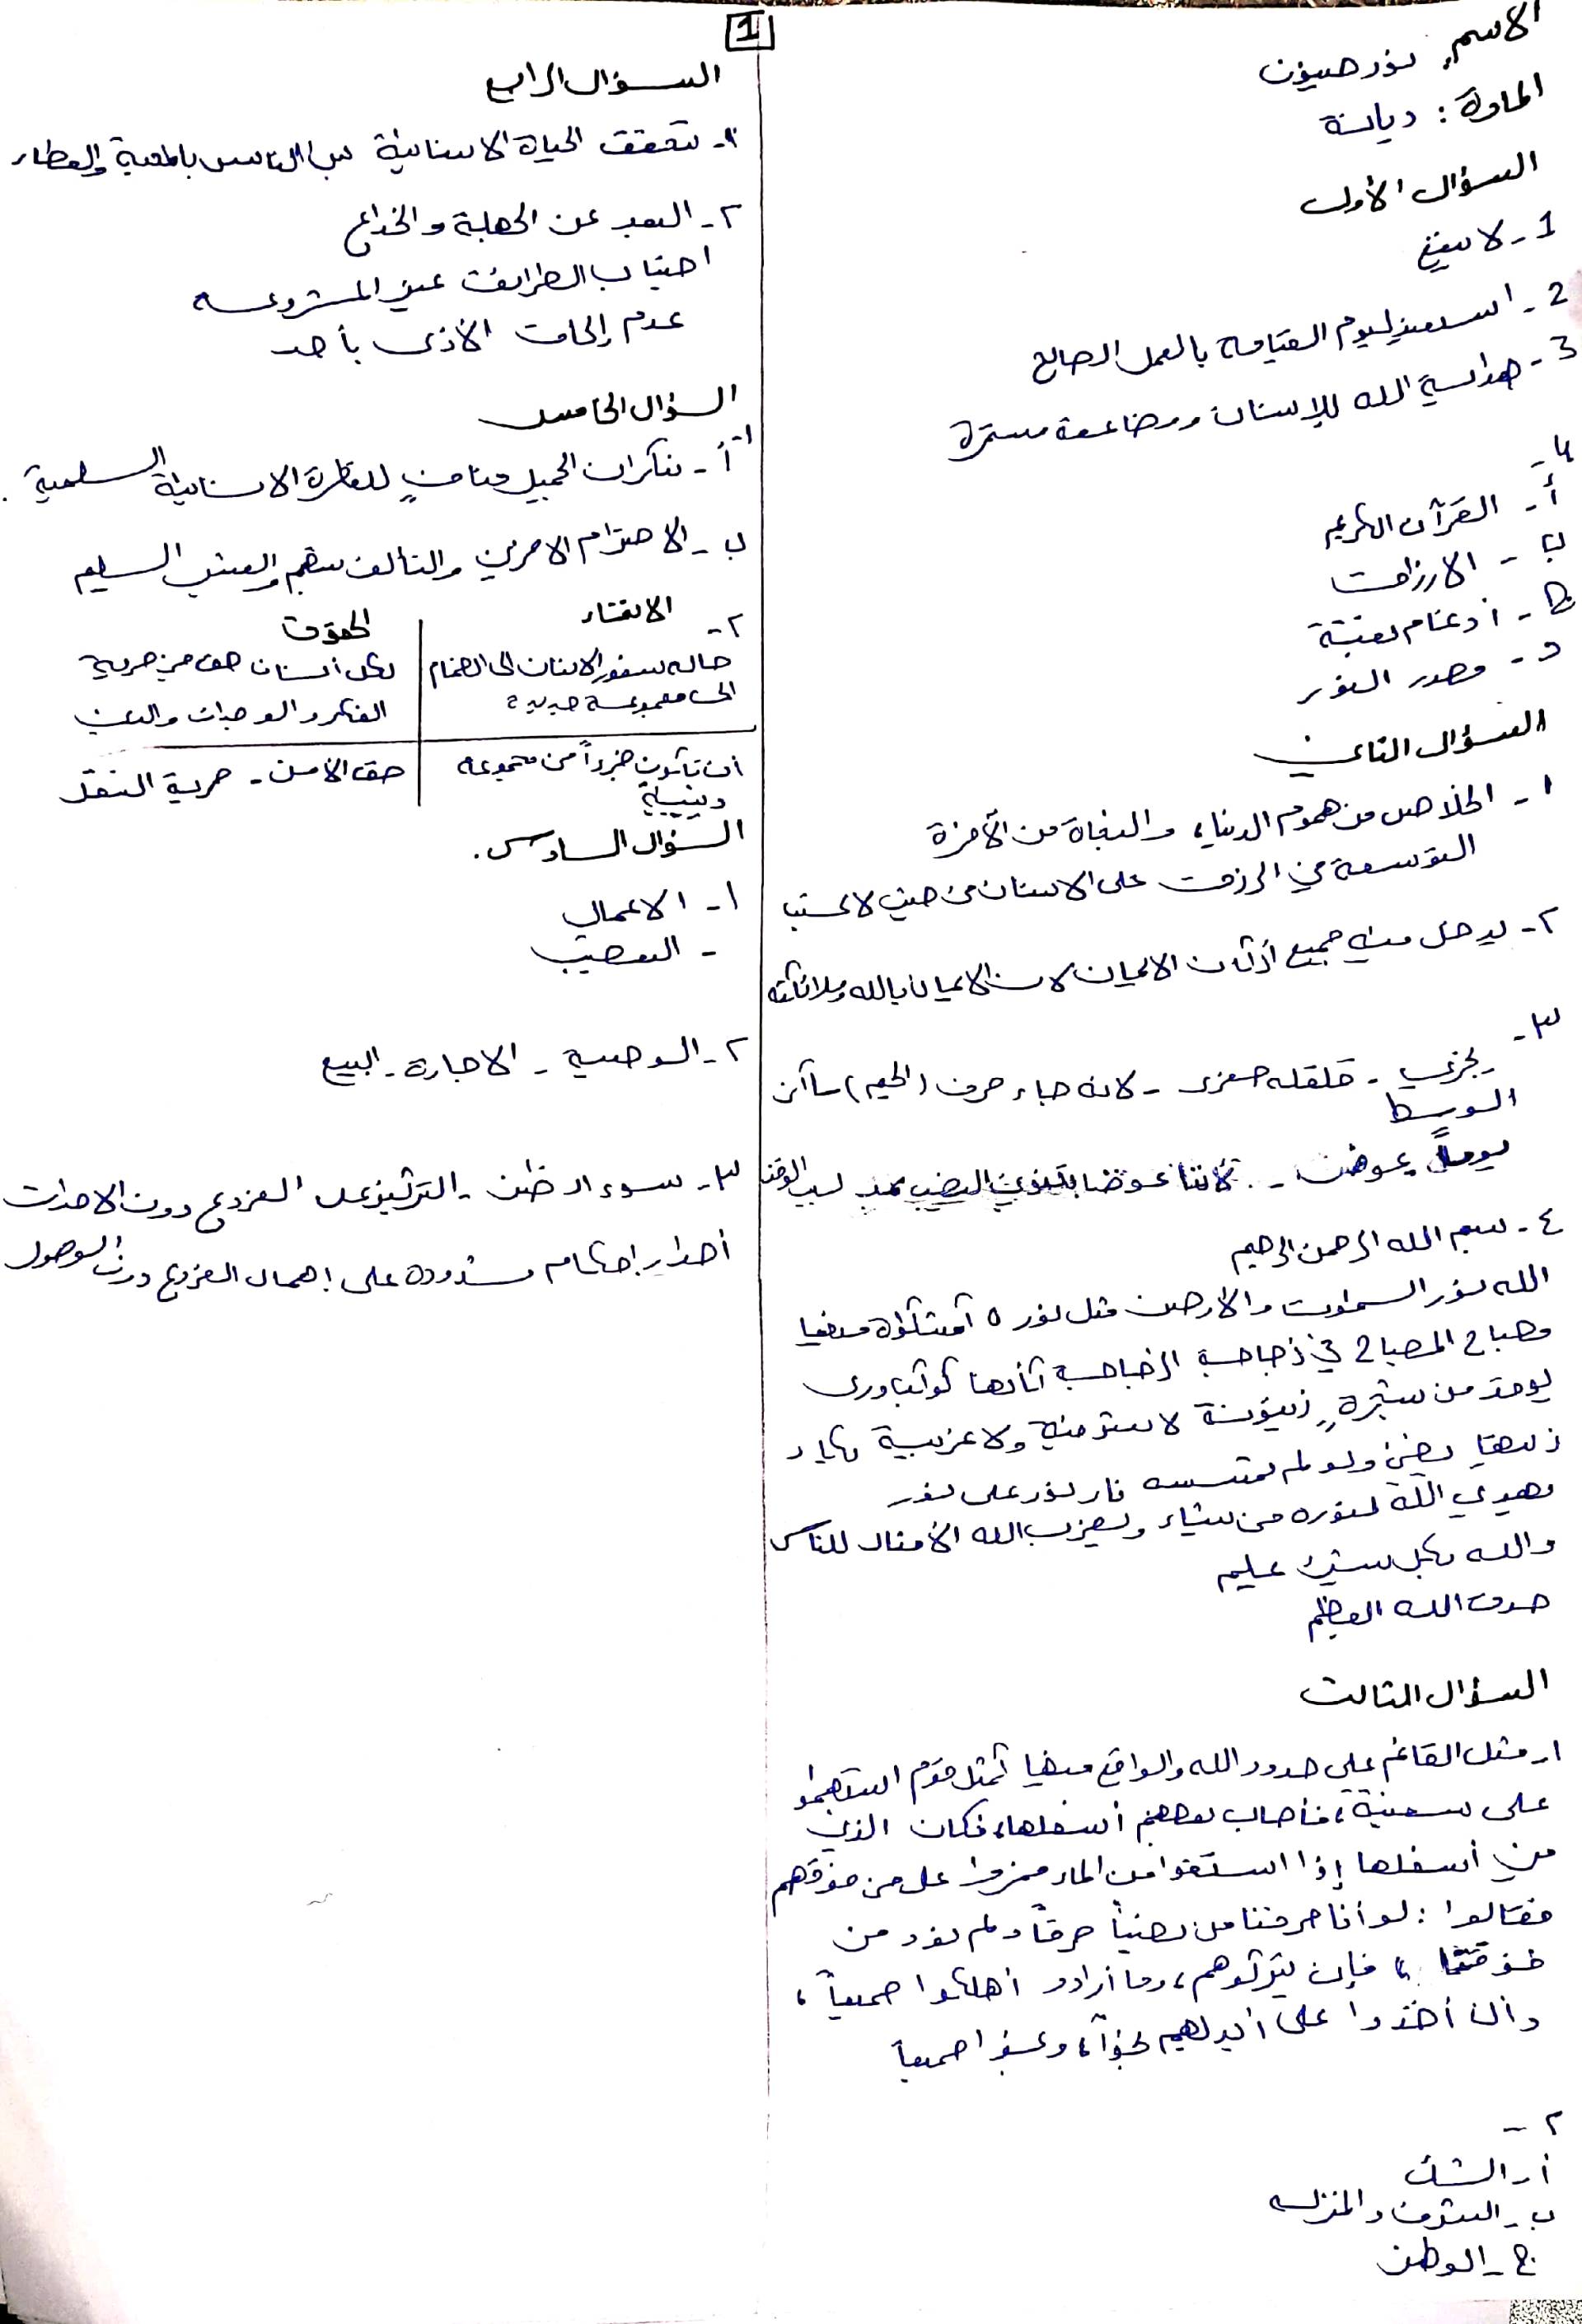 1
الاسم: نور
المادة: ديانة
السؤال الأول
1-
2- استعد ليوم القيامة بالعمل الصالح
3- هداية الله للإنسان ومضاعفة مستمرة
4-
أ- القرآن الكريم
ب- الارزاق
ج- ادغام بغنة
د- مصدر النور
السؤال الثاني
١- الخلاص من هموم الدنيا، والنجاة من الآخرة
التوسعة في الرزق على الانسان من حيث لا يحتسب
٢- يدخل فيه جميع أركان الايمان لان الايمان بالله وملائكته
٣-
يجزي - قلقله صغرى - لانه جاء حرف (الجيم) ساكن
الوسط
يوماً عوض - لأننا عوضنا بتنوين النصب بمد لسبب الوقف
٤- بسم الله الرحمن الرحيم
الله نور السماوات والأرض مثل نوره كمشكاة فيها
مصباح المصباح في زجاجة الزجاجة كأنها كوكب دري
يوقد من شجرة زيتونة لا شرقية ولا غربية يكاد
زيتها يضئ ولو لم تمسسه نار نور على نور
يهدي الله لنوره من يشاء ويضرب الله الأمثال للناس
والله بكل شيء عليم
صدق الله العظيم
السؤال الثالث
١- مثل القائم على حدود الله والواقع فيها كمثل قوم استهموا
على سفينة، فأصاب بعضهم أسفلها، فكان الذين
في أسفلها إذا استقوا من الماء مروا على من فوقهم
فقالوا: لو أنا خرقنا من نصيبنا خرقاً ولم نؤذ من
فوقنا، فإن يتركوهم، وما أرادو أهلكوا جميعاً،
وأن أخذوا على أيديهم نجوا، ونجوا جميعاً
٢-
أ- الشك
ب- الشرف والمنزله
ج- الوطن
السؤال الرابع
١- تتحقق الحياة الانسانية بين الناس بالمحبة والعطاء
٢- البعد عن الحيلة والخداع
اجتناب الطرائق غير المشروعه
عدم إلحاق الأذى بأحد
السؤال الخامس
١- أ- نكران الجميل مناف للفطرة الانسانية السليمة.
ب- الاحترام الاخرين والتألف بينهم والعيش السليم
٢- الانتماء | الحقوق
حاله شعور الانسان الى انضمام | لكل انسان حق في حرية
الى مجموعة جديدة | الفكر والوجدان والدين
ان تكون جزءاً من مجموعه | حق الامن - حرية التنقل
دينية
السؤال السادس.
١- الاعمال
- التعصيب
٢- الوصية - الاجارة - البيع
٣- سوء الظن - التركيز على الفروع دون الاحداث
أصدار احكام مشدودة على إهمال الفروع دون الوصول